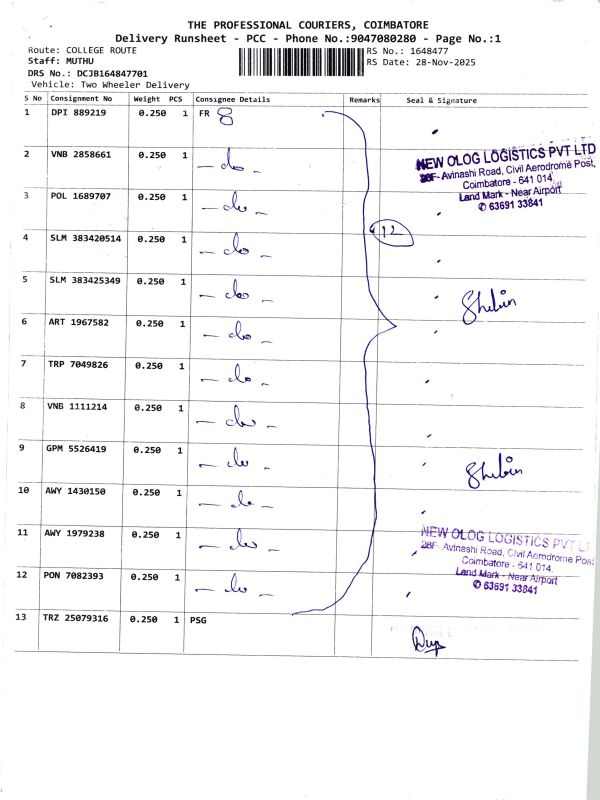 THE PROFESSIONAL COURIERS, COIMBATORE
Delivery Runsheet - PCC - Phone No.:9047080280 - Page No.:1
Route: COLLEGE ROUTE
RS No.: 1648477
Staff: MUTHU
RS Date: 28-Nov-2025
DRS No.: DCJB164847701
Vehicle: Two Wheeler Delivery
S No Consignment No Weight PCS Consignee Details Remarks Seal & Signature
1 DPI 889219 0.250 1 FR 8
2 VNB 2858661 0.250 1 - do -
NEW OLOG LOGISTICS PVT LTD
28F- Avinashi Road, Civil Aerodrome Post,
Coimbatore - 641 014.
Land Mark - Near Airport
✆ 63691 33841
3 POL 1689707 0.250 1 - do -
12
4 SLM 383420514 0.250 1 - do -
5 SLM 383425349 0.250 1 - do -
Shibin
6 ART 1967582 0.250 1 - do -
7 TRP 7049826 0.250 1 - do -
8 VNB 1111214 0.250 1 - do -
9 GPM 5526419 0.250 1 - do -
Shibin
10 AWY 1430150 0.250 1 - do -
11 AWY 1979238 0.250 1 - do -
NEW OLOG LOGISTICS PVT LT
28F- Avinashi Road, Civil Aerodrome Post
Coimbatore - 641 014.
Land Mark - Near Airport
✆ 63691 33841
12 PON 7082393 0.250 1 - do -
13 TRZ 25079316 0.250 1 PSG